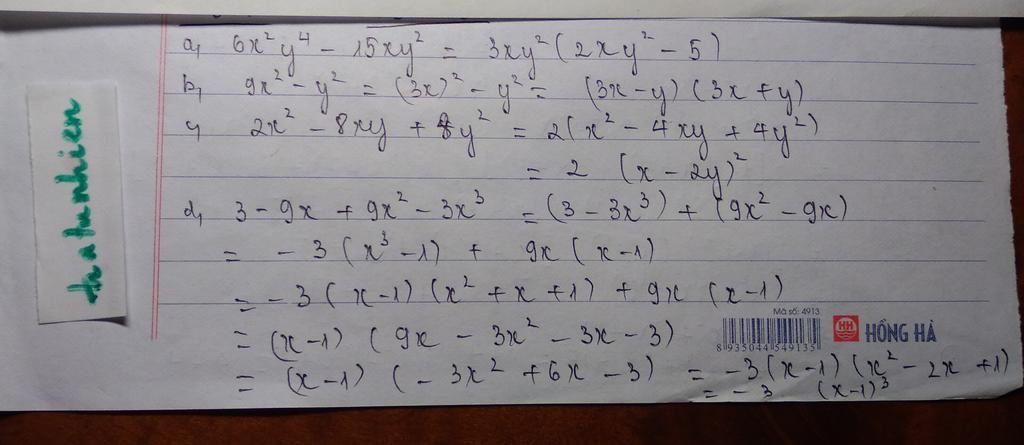 a, 6x²y⁴ - 15xy² = 3xy² (2xy² - 5)
b, 9x² - y² = (3x)² - y² = (3x - y) (3x + y)
c, 2x² - 8xy + 8y² = 2(x² - 4xy + 4y²)
= 2 (x - 2y)²
d, 3 - 9x + 9x² - 3x³ = (3 - 3x³) + (9x² - 9x)
= - 3 (x³ - 1) + 9x (x - 1)
= - 3 (x - 1) (x² + x + 1) + 9x (x - 1)
= (x - 1) (9x - 3x² - 3x - 3)
= (x - 1) (- 3x² + 6x - 3) = -3(x - 1) (x² - 2x + 1)
= - 3 (x - 1)³
hatunhien
Mã số: 4913
8 935044 549135
HH HỒNG HÀ